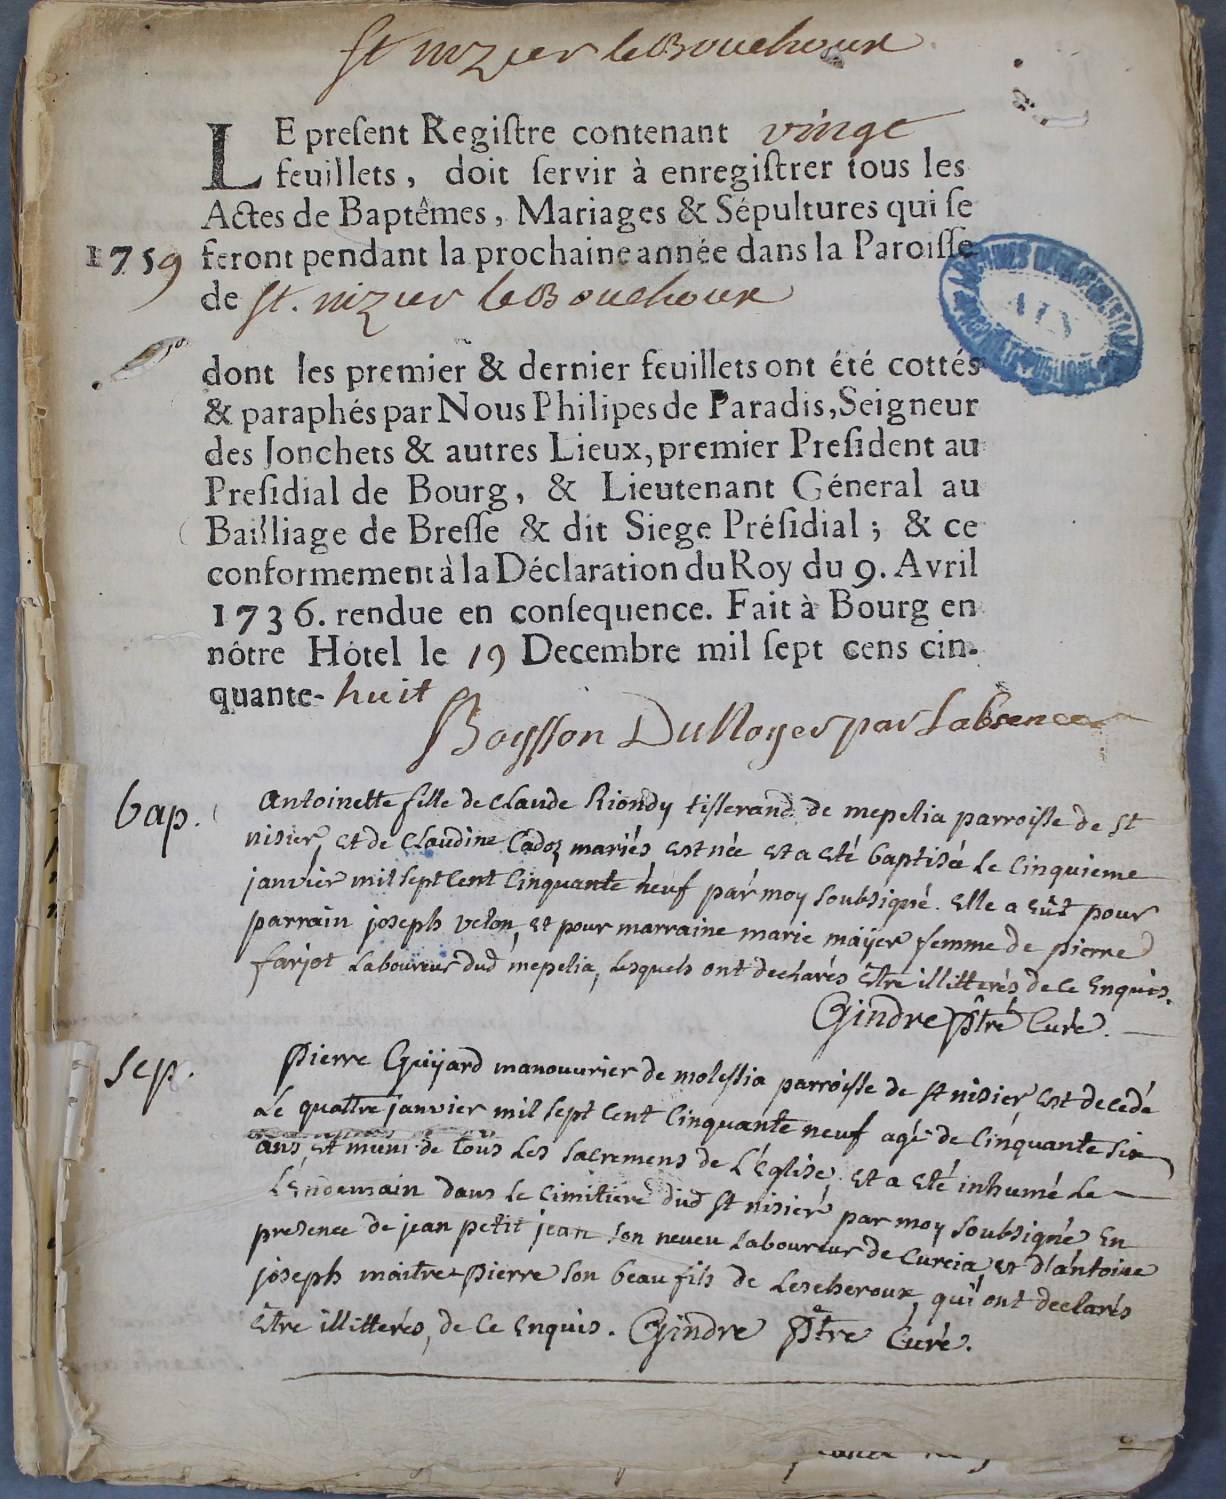 St nizier le Bouchoux
LE preſent Regiſtre contenant vingt
feuillets, doit ſervir à enregiſtrer tous les
Actes de Baptêmes, Mariages & Sépultures qui ſe
1759 feront pendant la prochaine année dans la Paroiſſe
de St. nizier le Bouchoux
dont les premier & dernier feuillets ont été cottés
& paraphés par Nous Philipes de Paradis, Seigneur
des Jonchets & autres Lieux, premier Preſident au
Preſidial de Bourg, & Lieutenant Géneral au
Bailliage de Breſſe & dit Siege Préſidial ; & ce
conformement à la Déclaration du Roy du 9. Avril
1736. rendue en conſequence. Fait à Bourg en
nôtre Hôtel le 19 Decembre mil ſept cens cin-
quante-huit
Boysson DuNoyer par Labsence
bap. Antoinette fille de Claude Riondy tisserand de mepelia parroisse de St
nisier, et de Claudine Cadoz mariés est née et a eté baptisée le cinquieme
janvier mil sept cent cinquante neuf par moy soubsigné. elle a eût pour
parrain joseph velon, et pour marraine marie maÿer femme de pierre
farjot laboureur dud mepelia, lesquels ont declarés être illitterés de ce enquis.
Gindre Ptre Curé.
Sep. Pierre Guÿard manouvrier de molissia parroisse de St nisier est decedé
le quattre janvier mil sept cent cinquante neuf agé de cinquante six
ans, et muni de tous les sacremens de L'Eglise, et a eté inhumé le
lendemain dans le cimitiere dud St nisier par moy soubsigné en
presence de jean petit jean son neveu laboureur de Curcia, et d'antoine
joseph maitre pierre son beau fils de Lescheroux, qui ont declarés
être illitterés, de ce enquis. Gindre Ptre Curé.